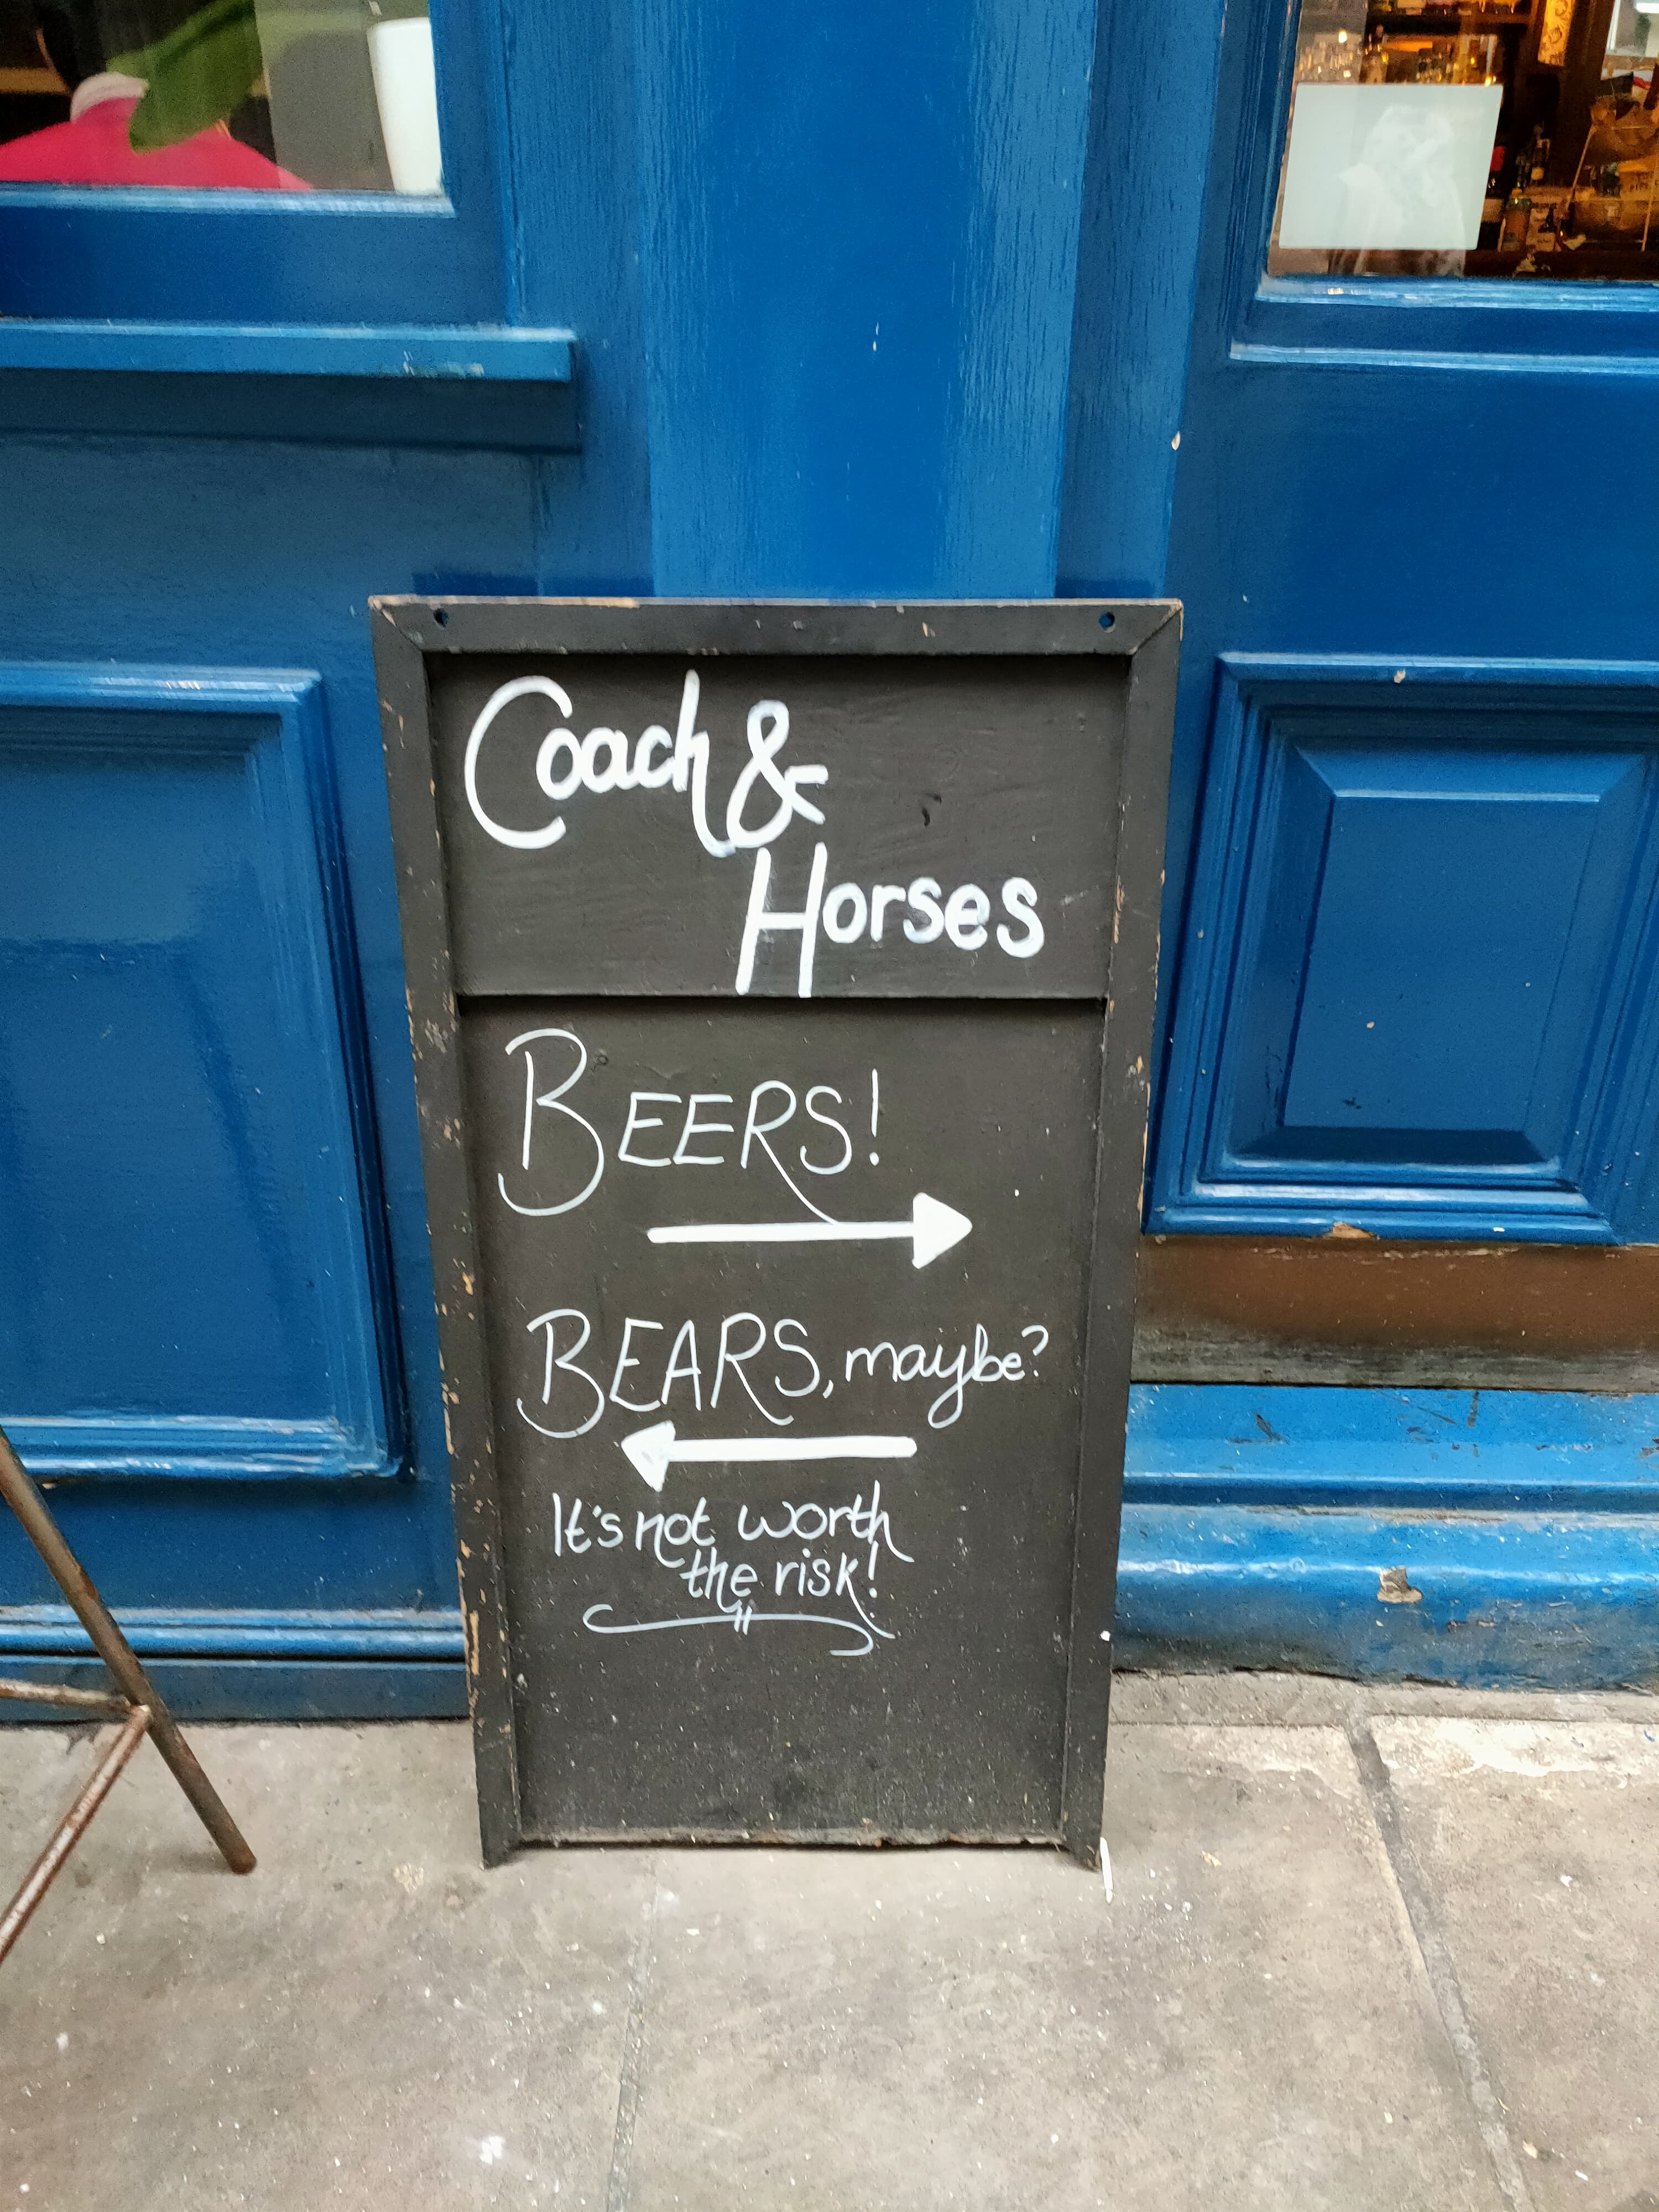 Coach &
Horses
BEERS!
BEARS, maybe?
It's not worth
the risk!